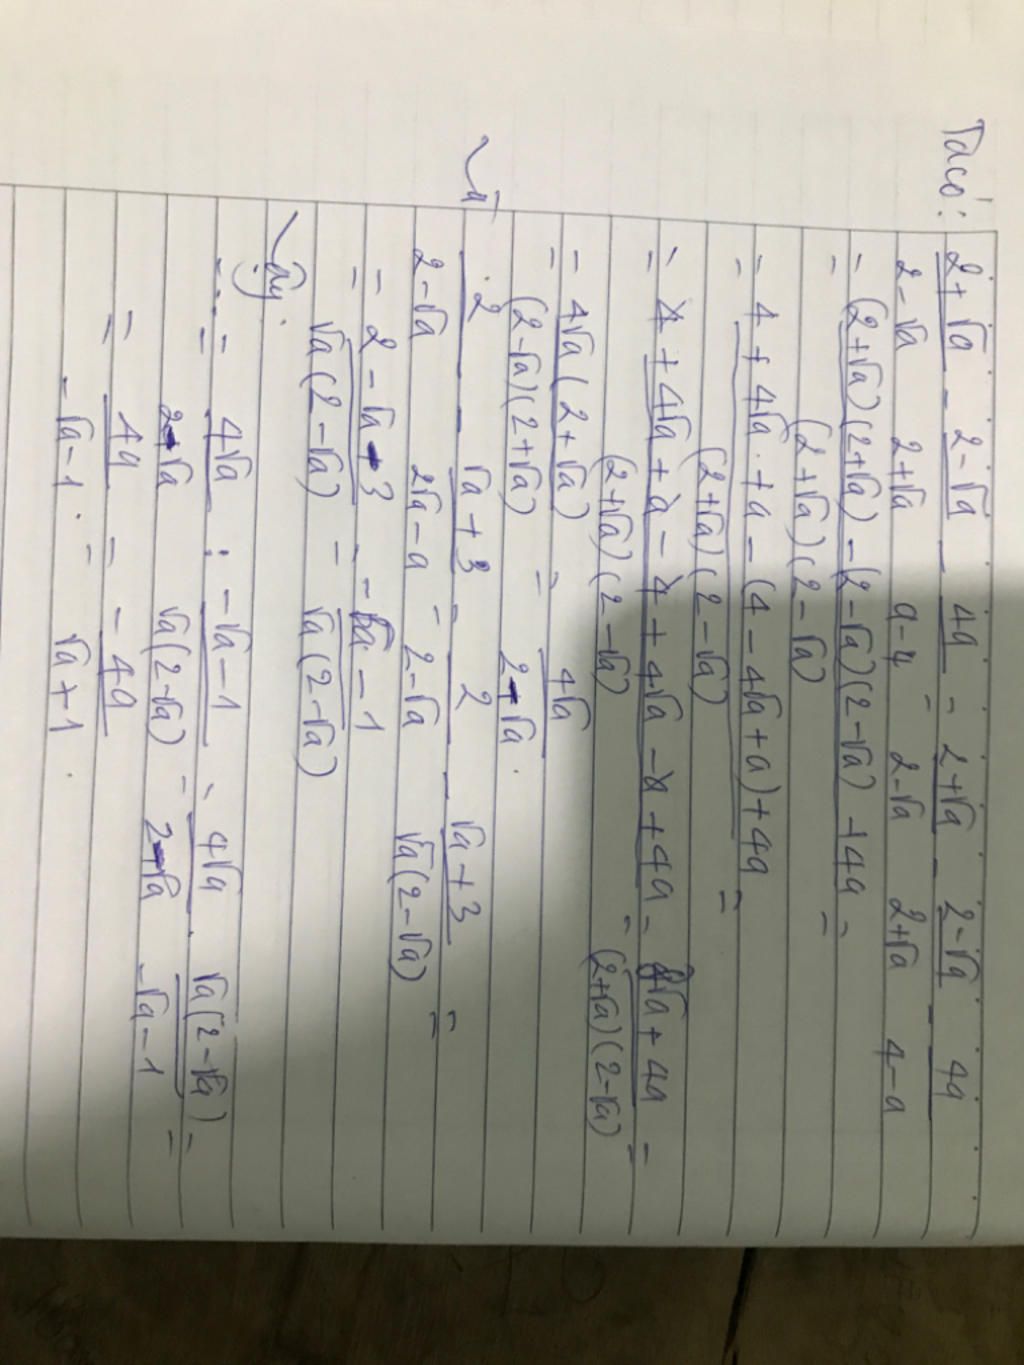 Ta có: (2+√a)/(2-√a) - (2-√a)/(2+√a) - 4a/(a-4) = (2+√a)/(2-√a) - (2-√a)/(2+√a) - 4a/(4-a)
= ((2+√a)(2+√a) - (2-√a)(2-√a) + 4a)/((2+√a)(2-√a)) =
= (4 + 4√a + a - (4 - 4√a + a) + 4a)/((2+√a)(2-√a)) =
= (4 + 4√a + a - 4 + 4√a - a + 4a)/((2+√a)(2-√a)) = (8√a + 4a)/((2+√a)(2-√a)) =
= 4√a(2+√a)/((2-√a)(2+√a)) = 4√a/(2-√a).
2/(2-√a) - (√a+3)/(2√a-a) = 2/(2-√a) - (√a+3)/(√a(2-√a)) =
= (2-√a+3)/(√a(2-√a)) = (-√a-1)/(√a(2-√a))
Vậy.
... = 4√a/(2-√a) : (-√a-1)/(√a(2-√a)) = 4√a/(2-√a) . √a(2-√a)/(-√a-1) =
= 4a/(-√a-1) = -4a/(√a+1).